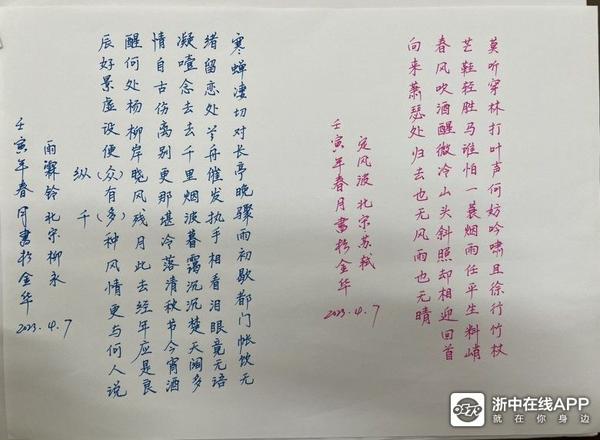 莫听穿林打叶声何妨吟啸且徐行竹杖
芒鞋轻胜马谁怕一蓑烟雨任平生料峭
春风吹酒醒微冷山头斜照却相迎回首
向来萧瑟处归去也无风雨也无晴
定风波北宋苏轼
壬寅年春月書於金华
2023.4.7
寒蝉凄切对长亭晚骤雨初歇都门帐饮无
绪留恋处兰舟催发执手相看泪眼竟无语
凝噎念去去千里烟波暮霭沉沉楚天阔多
情自古伤离别更那堪冷落清秋节今宵酒
醒何处杨柳岸晓风残月此去经年应是良
辰好景虚设便(众)有(多)种风情更与何人说
纵 千
雨霖铃北宋柳永
壬寅年春月書於金华
2023.4.7
浙中在线APP
就在你身边